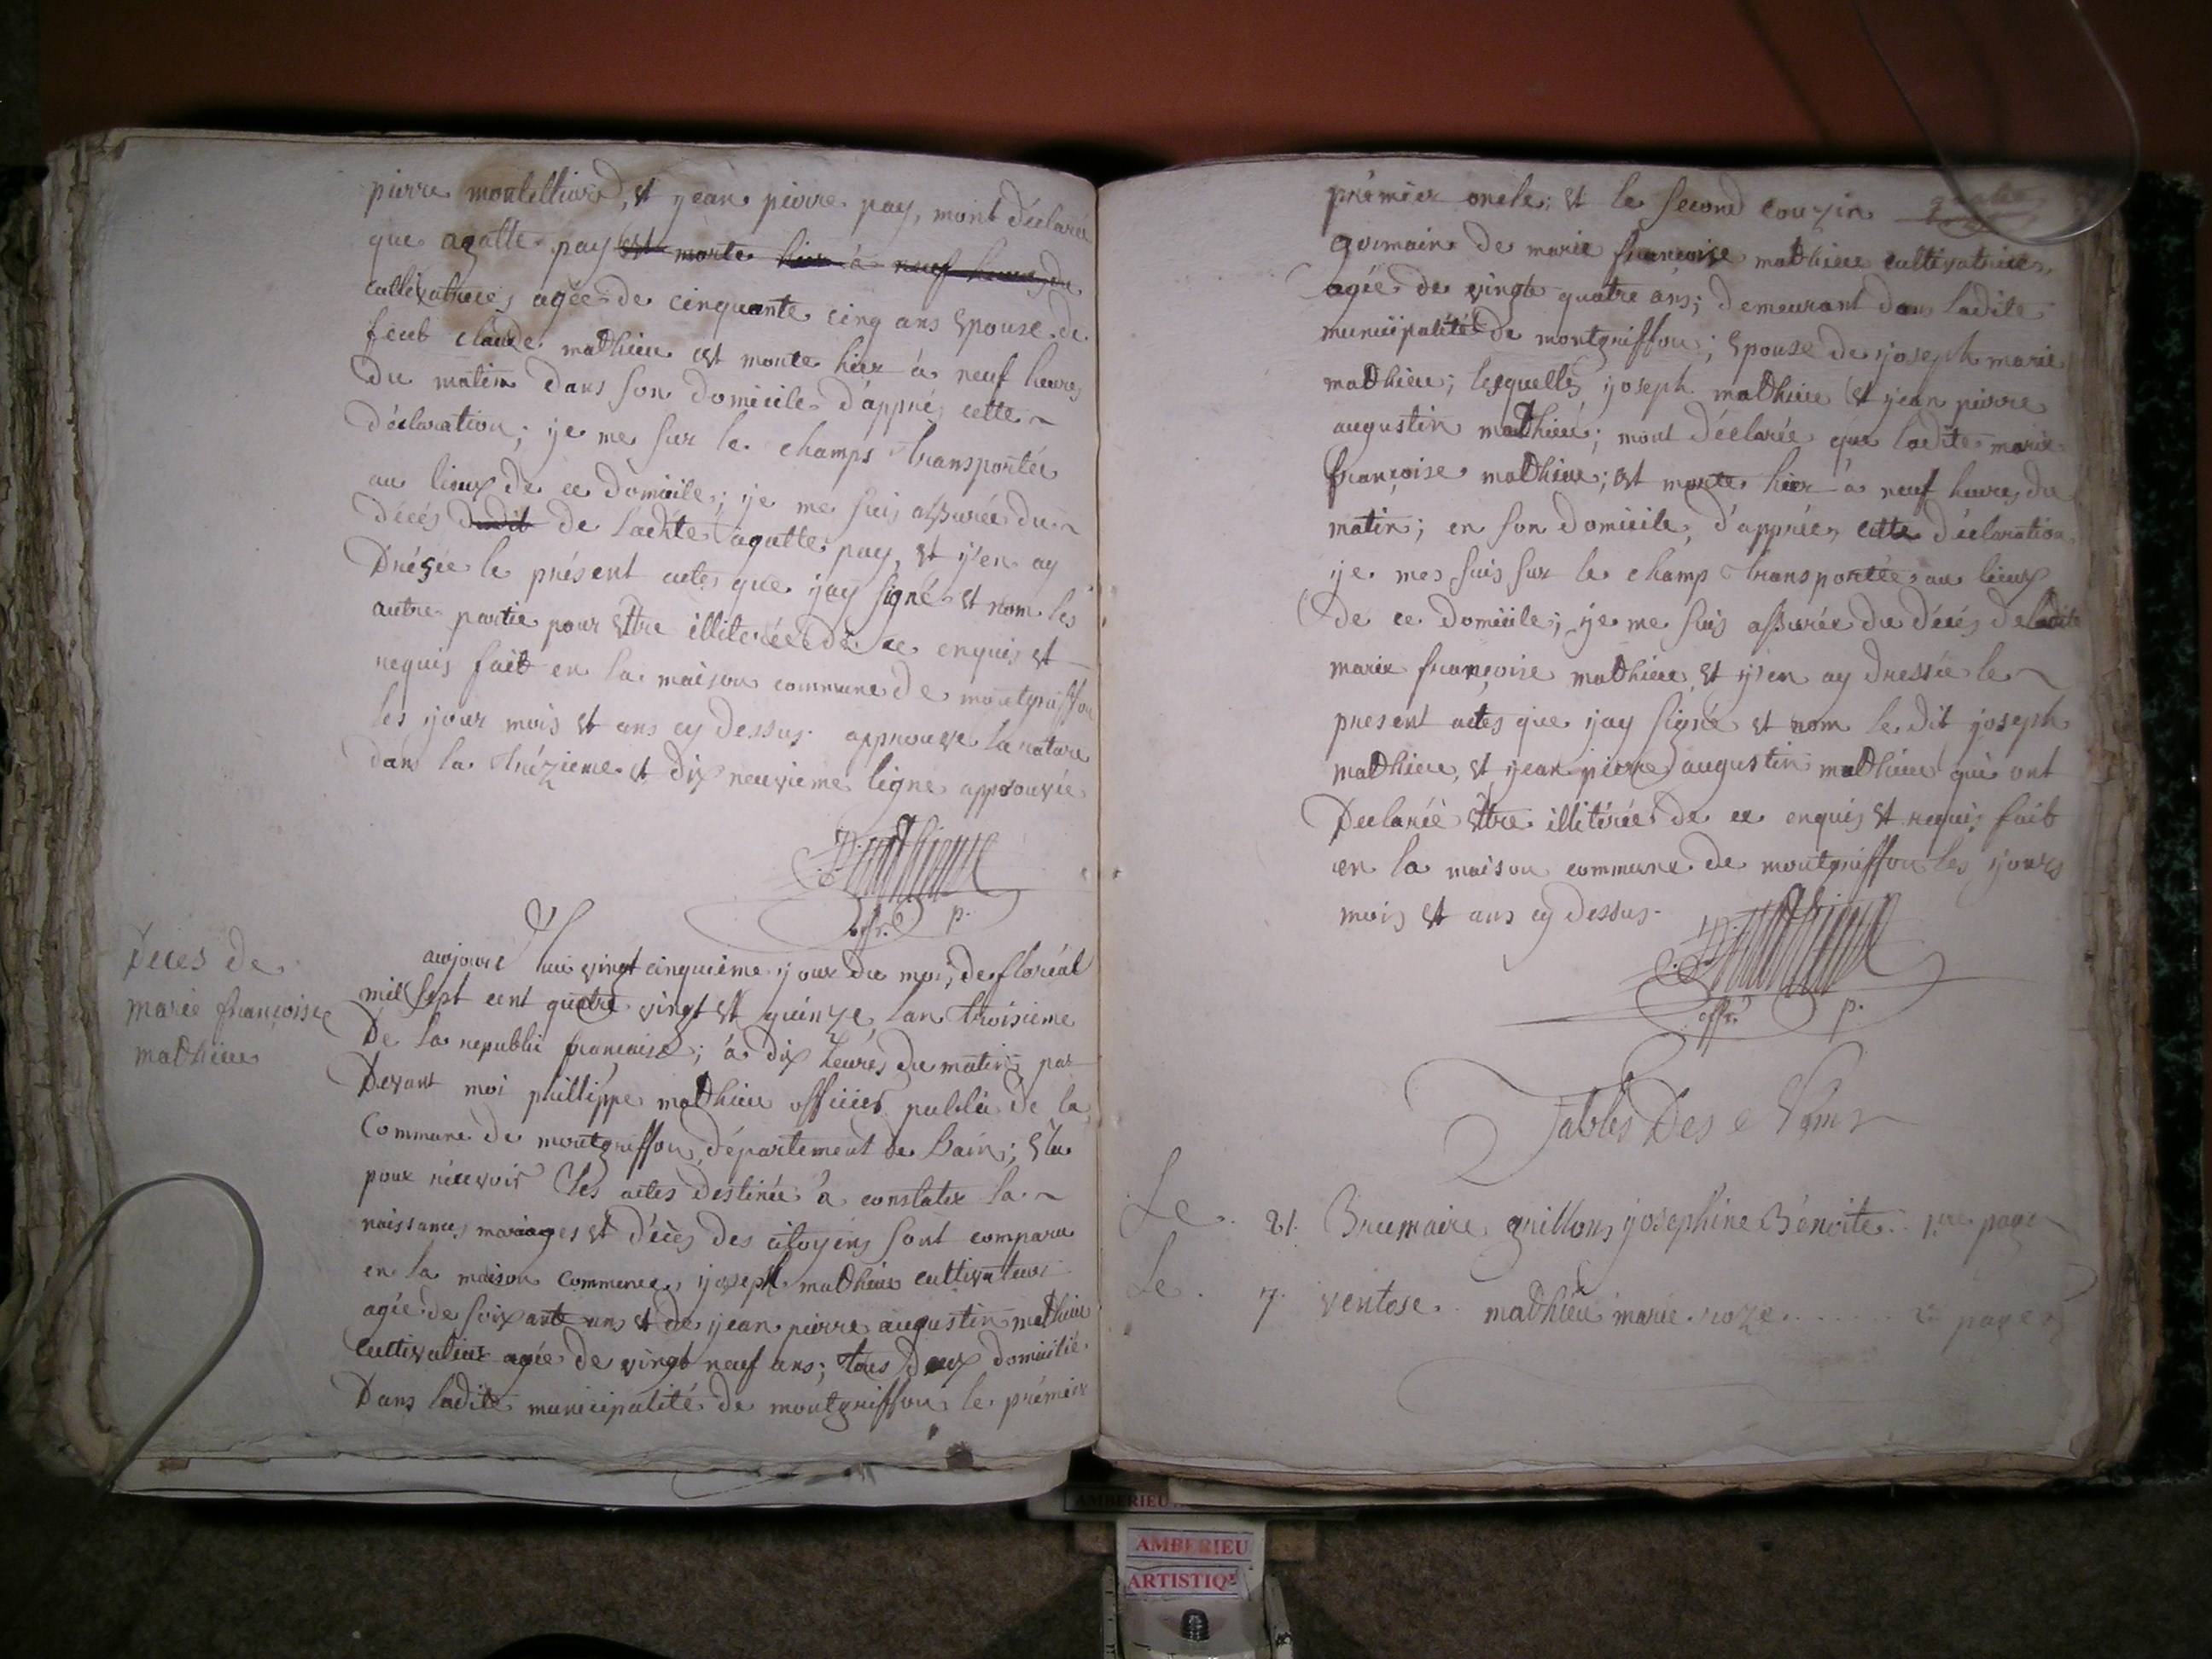 pierre montillard, et jean pierre pay, mont déclaréé
que agatte pay est morte hier à neuf heures du
cultivatrices agèe de cinquante cinq ans Epouse de
feut claude mathieu est morte hier à neuf heures
Du matin dans son domicile d'apprés cette
déclaration; je me sur le champs transportée
au lieux de ce domicile; je me suis assurée du
décés dudit de ladite agatte pay, et j'en ay
Drésée le présent actes que jay signé et nom les
autre partie pour Ettre illiterée de ce enquis et
requis fait en la maison commune de montgriffon
les jour mois et ans cy dessus. approuve la rature
dans la trézieme et dix neuvieme ligne approuvée
p. mathieu
offr. p.
Deces de
marie françoise
mathieu
aujourd hui vingt cinquiéme jour du mois de floréal
mil sept cent quatre vingt et quinze lan troisieme
De la republi francaise; à dix heures du matin par
Devant moi philippe mathieu officier public de la
Commune de montgriffon, département de Lain; Elu
pour récevoir les actes destinée à constater la
naissances mariages et décès des citoyens sont comparu
en la maison communes, joseph mathieu cultivateur
agée de soixante ans et de jean pierre augustin mathieu
Cultivateur agée de vingt neuf ans; tous deux domicilié
Dans ladite municipalité de montgriffon le prémier
prémier oncle; et le second couzin
germain de marie françoise mathieu cultivatrices,
agée de vingte quatre ans; demeurant dans ladite
municipalitée de montgriffon; Epouse de joseph marie
mathieu; lesquelles joseph mathieu et jean pierre
augustin mathieu; mont déclarée que ladite marie
françoise mathieu; est morte hier à neuf heures du
matin; en son domicile, d'apprées cette déclaration
je mes suis sur le champ transportée au lieux
de ce domicile; je me suis assurée du décés deladite
marie françoise mathieu et j'en ay dressée le
present actes que jay signé et nom le dit joseph
mathieu, et jean pierre augustin mathieu qui ont
Declaréé Ettre illitérée de ce enquis et requis fait
en la maison commune de montgriffon les jours
mois et ans cy dessus.
p. mathieu
offr. p.
Tables Des
Le 21. Brumaire grillons josephine Bénoite .. 1re page
Le 7. ventose. mathieu marie roze ...... page
AMBERIEU
AMBERIEU
ARTISTIQ